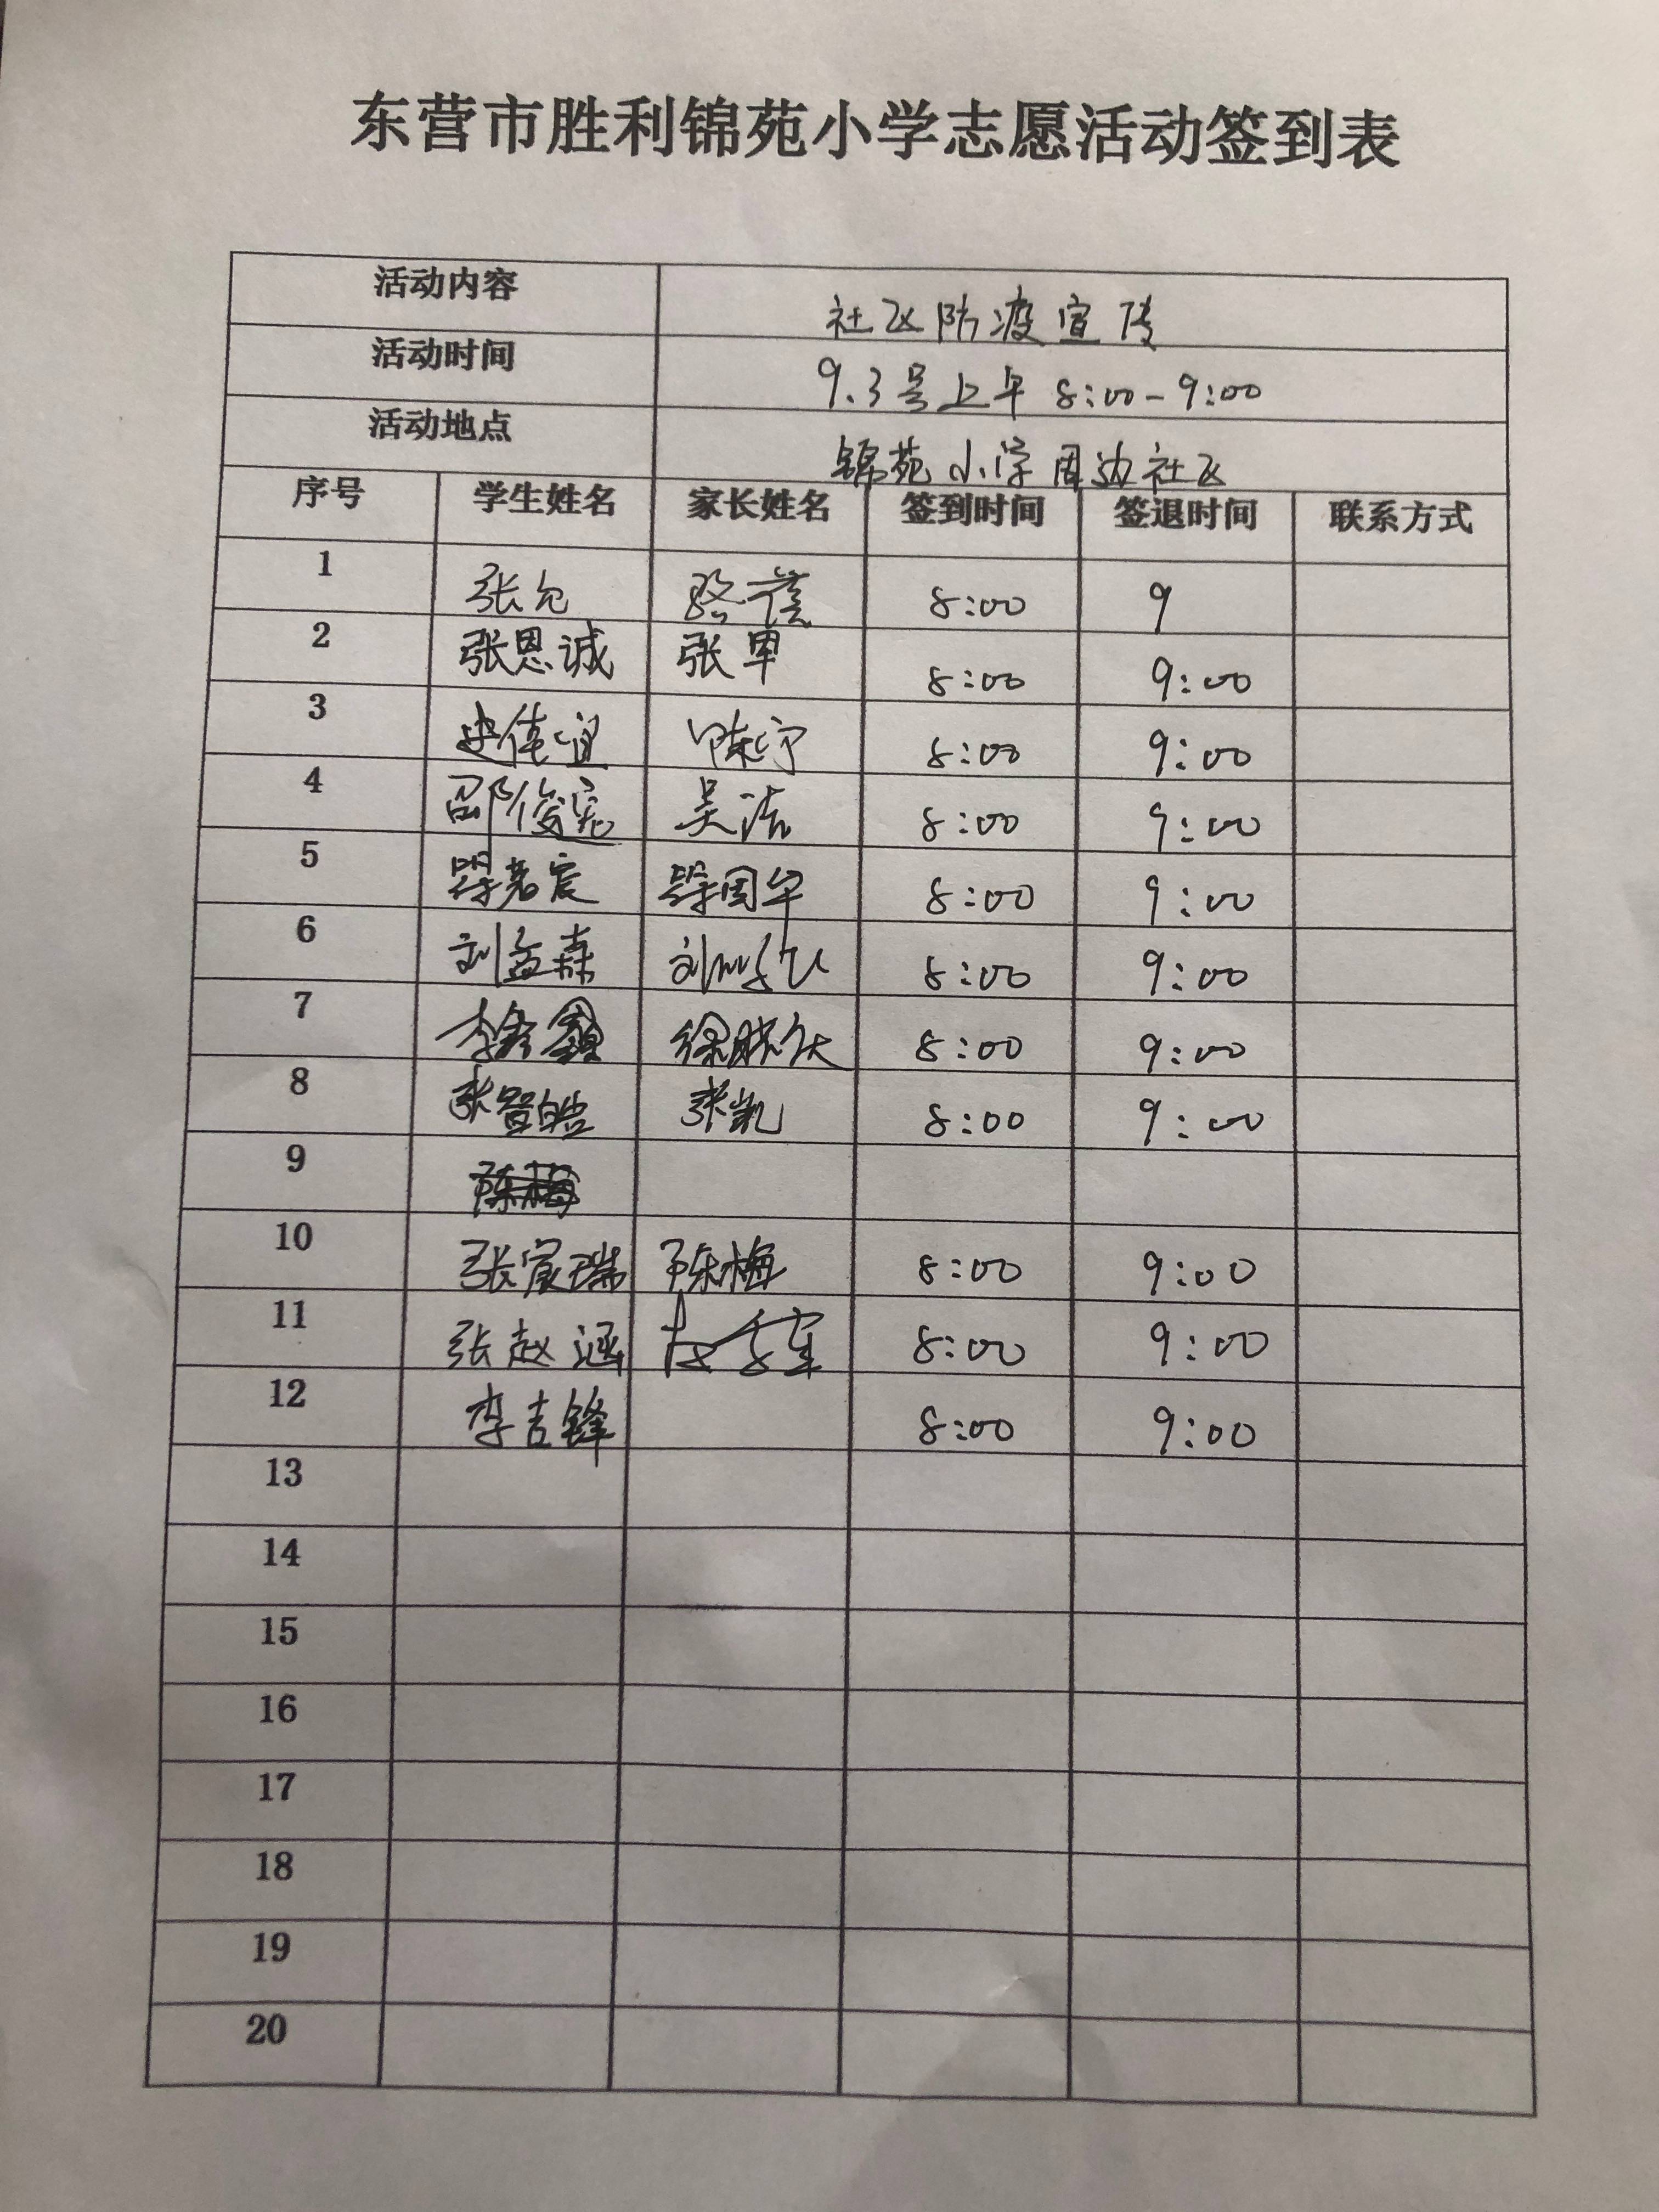 东营市胜利锦苑小学志愿活动签到表
活动内容 社区防疫宣传
活动时间 9.3号上午 8:00-9:00
活动地点 锦苑小学周边社区
序号 学生姓名 家长姓名 签到时间 签退时间 联系方式
1 张允 8:00 9
2 张恩诚 张军 8:00 9:00
3 史伟谊 陈宁 8:00 9:00
4 邵俊宪 吴洁 8:00 9:00
5 8:00 9:00
6 刘益森 8:00 9:00
7 8:00 9:00
8 张智皓 张凯 8:00 9:00
9 陈梅
10 张宸瑞 陈梅 8:00 9:00
11 张赵涵 8:00 9:00
12 李吉锋 8:00 9:00
13
14
15
16
17
18
19
20